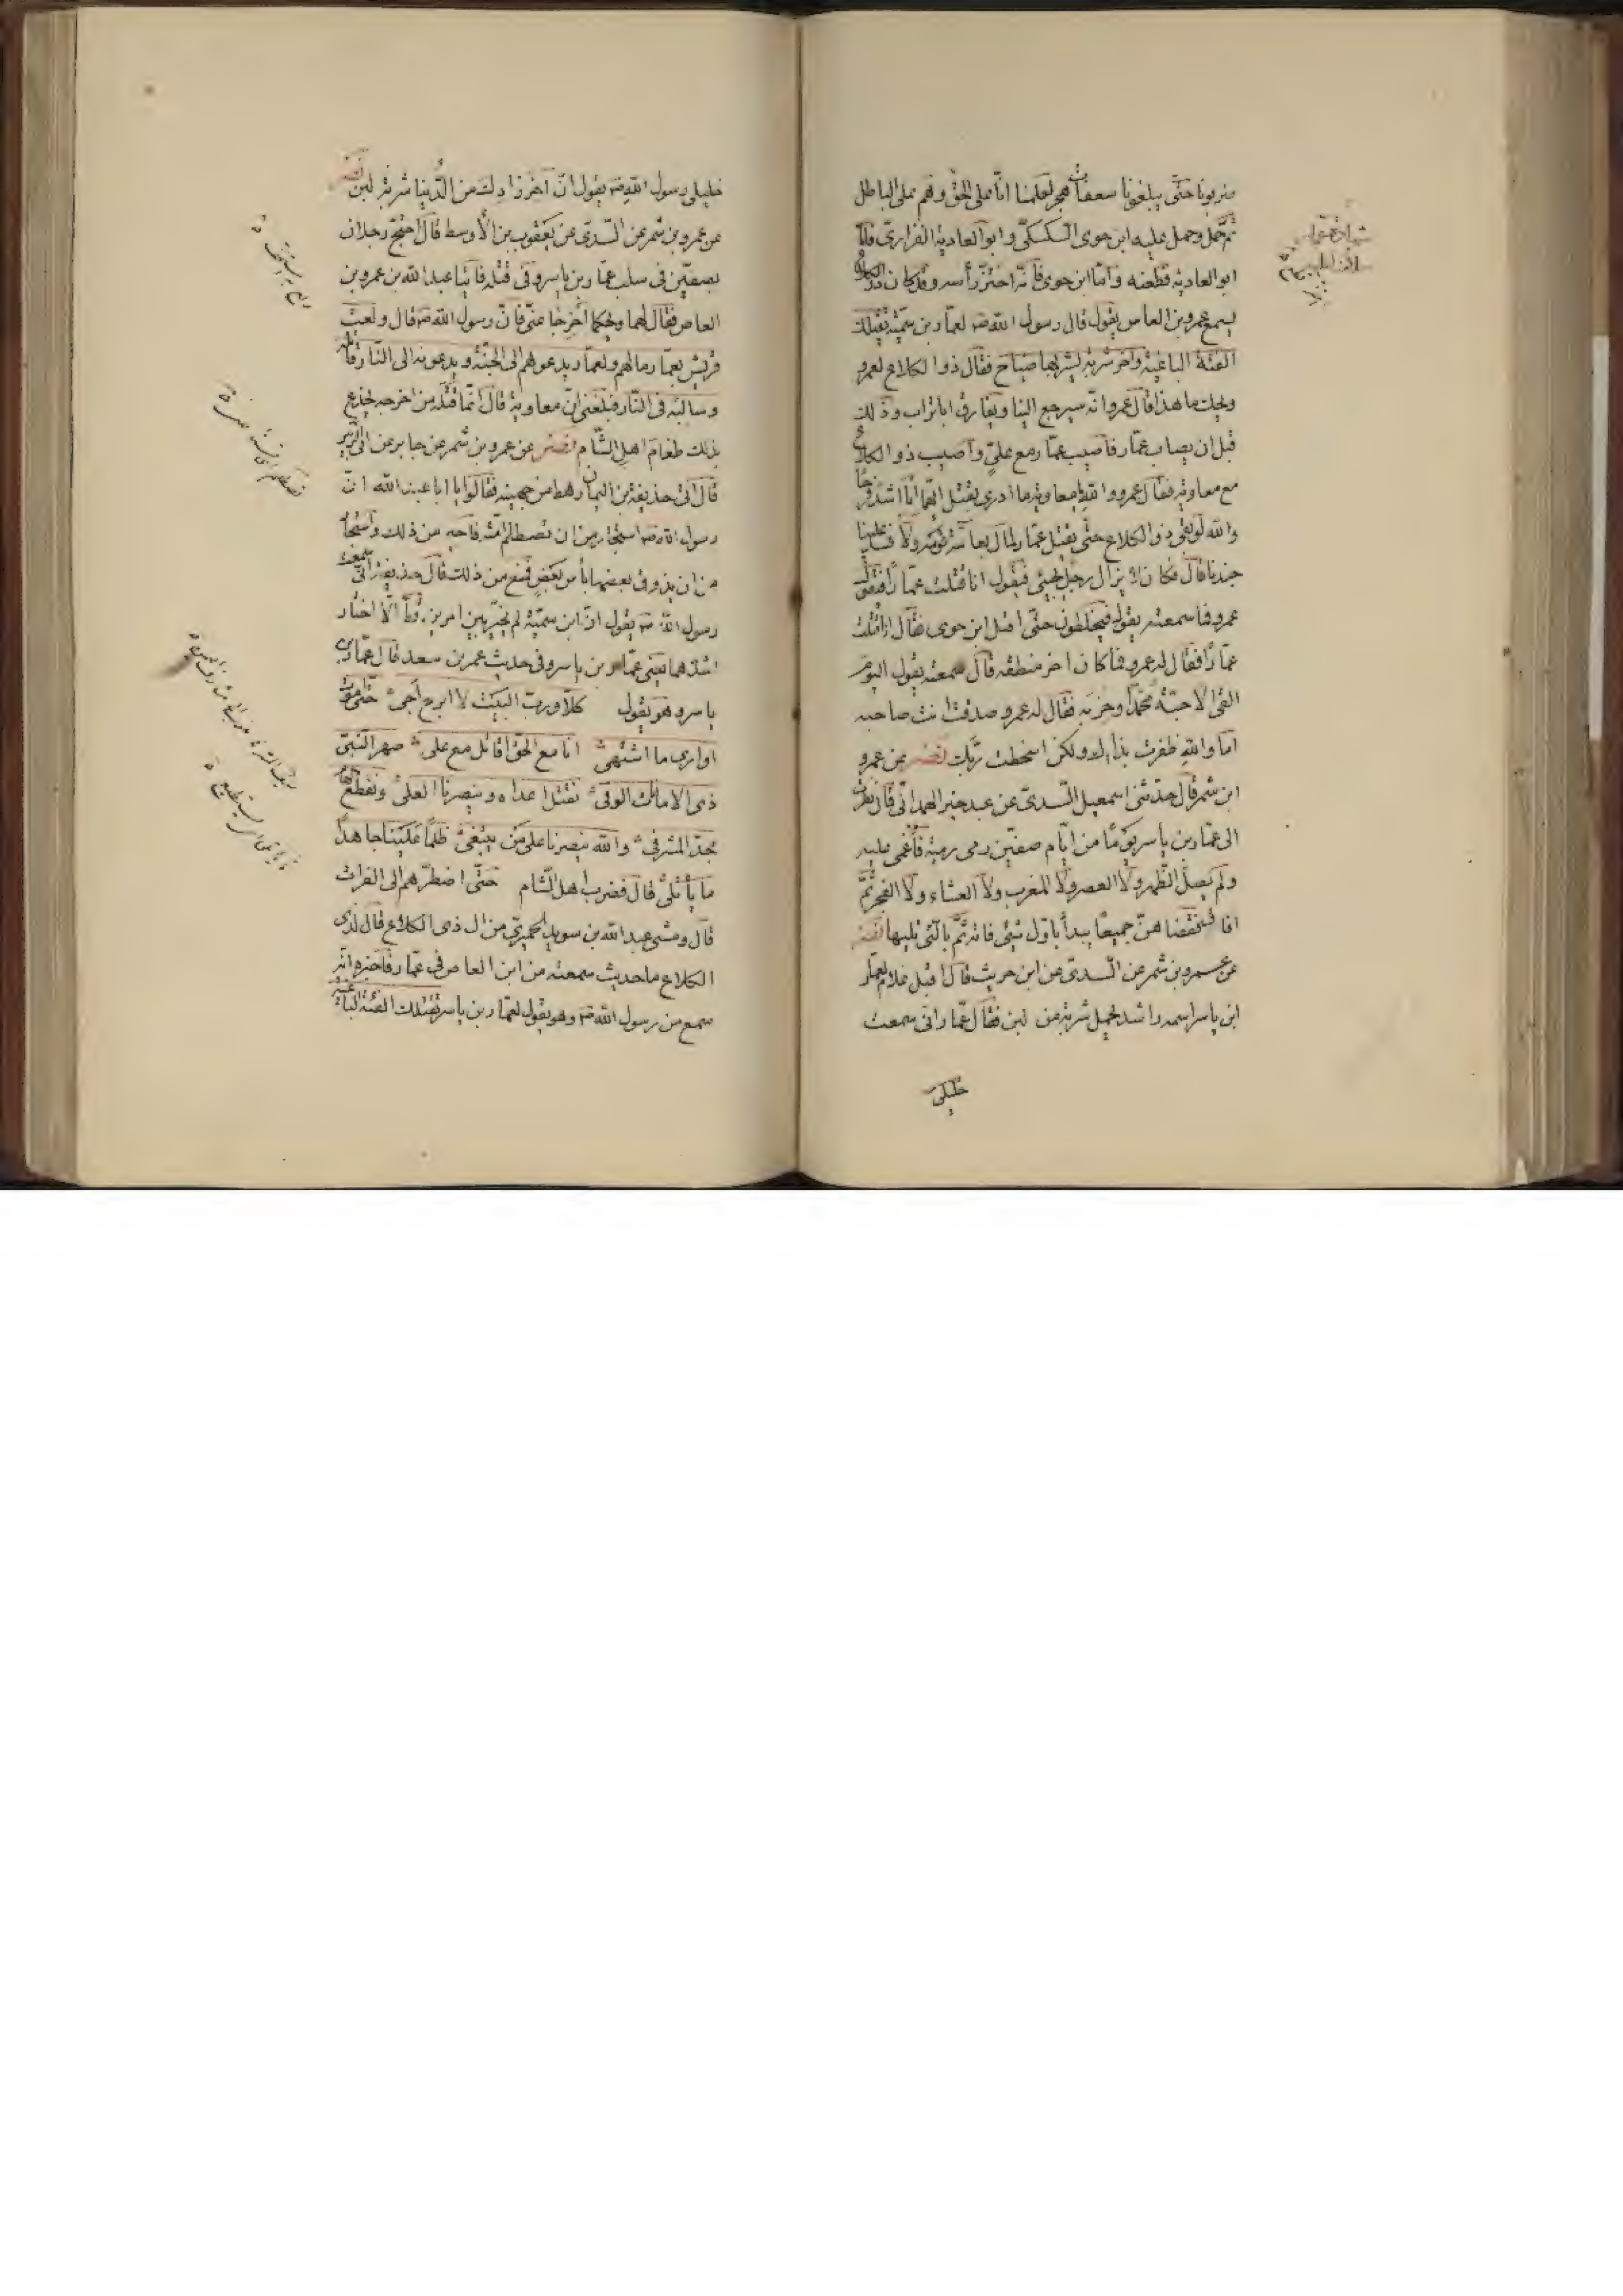 ضربونا حتى يبلغونا سعفات هجر لعلمنا انّا على الحقّ وهم على الباطل
ثمّ حمل وحمل عليه ابن جوى السّكسكىّ وابو العادية الفزارىّ فامّا
ابو العادية فطعنه وامّا ابن جوى فانّه احتزّ رأسه وقد كان ذو الكلاع
يسمع عمرو بن العاص يقول قال رسول الله صه لعمّار بن سميّة تقتلك
الفئة الباغية وآخر شربة تشربها ضياح فقال ذو الكلاع لعمرو
ويحك ما هذا قال عمرو انّه سيرجع الينا ويفارق ابا تراب وذلك
قبل ان يصاب عمّار فاصيب عمّار مع علىّ واصيب ذو الكلاع
مع معاوية فقال عمرو والله يا معاوية ما ادرى بقتل ايّهما انا اشدّ فرحًا
والله لو بقى ذو الكلاع حتّى يقتل عمّار لمال بعامّة قومه ولافسد علينا
جندنا قال فكان لا يزال رجل يجيئ فيقول انا قتلت عمّارًا فيقول له
عمرو فما سمعته يقول فيخلطون حتّى اقبل ابن جوى فقال انا قتلت
عمّارًا فقال له عمرو فما كان اخر منطقه قال سمعته يقول اليوم
القى الاحبّة محمّدًا وحزبه فقال له عمرو صدقت انت صاحبه
اما والله ظفرت يداك ولكن اسخطت ربّك نصر عن عمرو
ابن شمر قال حدّثنى اسمعيل السّدىّ عن عبد خير الهمدانى قال نظرت
الى عمّار بن ياسر يومًا من ايّام صفّين رمى رمية فاغمى عليه
ولم يصلّ الظّهر ولا العصر ولا المغرب ولا العشاء ولا الفجر ثمّ
افاق فقضاهنّ جميعًا يبدأ باوّل شئ فاته ثمّ بالّتى تليها نصر
عن عمرو بن شمر عن السّدىّ عن ابن حريث قال اقبل غلام لعمّار
ابن ياسر اسمه راشد يحمل شربة من لبن فقال عمّار انّى سمعت
خليلى
خليلى رسول الله صه يقول انّ آخر زادك من الدّنيا شربة لبن نصر
عن عمرو بن شمر عن السّدىّ عن يعقوب بن الأوسط قال احتجّ رجلان
بصفّين فى سلب عمّار بن ياسر وفى قتله فاتيا عبد الله بن عمرو بن
العاص فقال لهما ويحكما اخرجا عنّى فانّ رسول الله صه قال ولعبت
قريش بعمّار مالهم ولعمّار يدعوهم الى الجنّة ويدعونه الى النّار قاتله
وسالبه فى النّار فبلغنى انّ معاوية قال انّما قتله من اخرجه يخدع
بذلك طغام اهل الشّام نصر عن عمرو بن شمر عن جابر عن ابى الزّبير
قال اتى حذيفة بن اليمان رهط من جهينة فقالوا يا ابا عبد الله انّ
رسول الله صه استجار من ان تصطلم امّته فاجير من ذلك واستجار
من ان يذوق بعضها بأس بعض فمنع من ذلك قال حذيفة انّى سمعت
رسول الله صه يقول انّ ابن سميّة لم يخيّر بين امرين قطّ الّا اختار
اشدّهما يعنى عمّار بن ياسر وفى حديث عمر بن سعد قال عمّار بن
ياسر وهو يقول كلّا وربّ البيت لا ابرح اجى حتّى اموت
او ارى ما اشتهى انا مع الحقّ اقاتل مع على صهر النّبىّ
ذى الامانات الوفى نقتل اعداه وينصرنا العلى ونقطع الهام
بحدّ المشرفى والله ينصرنا على من يبتغى ظلمًا علينا جاهدًا
ما يأتلى قال فضرب اهل الشّام حتّى اضطرّهم الى الفرات
قال ومشى عبد الله بن سويد الحميرىّ من ال ذى الكلاع قال لذى
الكلاع ما حديث سمعته من ابن العاص فى عمّار فاخبره انّه
سمع من رسول الله صه وهو يقول لعمّار بن ياسر تقتلك الفئة الباغية